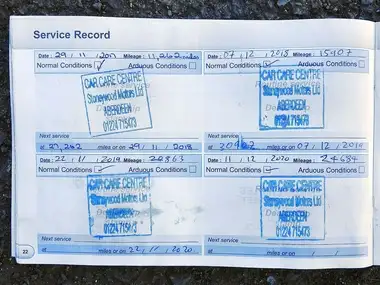 Service Record
Date : 29 / 11 / 2017 Mileage : 11,262 miles
Normal Conditions Arduous Conditions
CAR CARE CENTRE
Stoneywood Motors Ltd
ABERDEEN
01224 715473
Next service
at miles or on 29 / 11 / 2018
Date : 07 / 12 / 2018 Mileage : 15907
Normal Conditions Arduous Conditions
CAR CARE CENTRE
Stoneywood Motors Ltd
ABERDEEN
01224 715473
Next service
at miles or on 07 / 12 / 2019
Date : 22 / 11 / 2019 Mileage :
Normal Conditions Arduous Conditions
CAR CARE CENTRE
Stoneywood Motors Ltd
ABERDEEN
01224 715473
Next service
at miles or on 22 / 11 / 2020
Date : 11 / 12 / 2020 Mileage : 24684
Normal Conditions Arduous Conditions
CAR CARE CENTRE
Stoneywood Motors Ltd
ABERDEEN
01224 715473
Next service
at miles or on / /
22